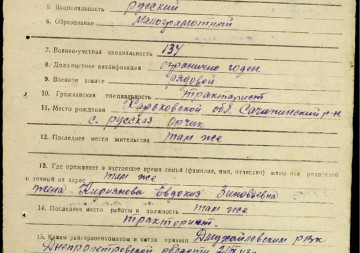 5. Национальность русский
6. Образование малограмотный
7. Военно-учетная специальность 134
8. Должностная квалификация ограничено годен.
9. Военное звание рядовой
10. Гражданская специальность тракторист
11. Место рождения Харьковской обл. р-н
с. русская орчик
12. Последнее место жительства там же
13. Где проживает в настоящее время семья (фамилия, имя, отчество) жены или родителей
и точный их адрес там же
жена Кирилнова Евдокия Зиновьевна
14. Последнее место работы и должность там же
тракторист.
15. Каким райгорвоенкоматом и когда призван рвк
Днепропетровской области